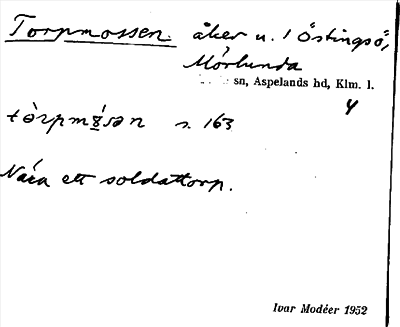 Torpmossen. åker u. 1 Östingsö,
Mörlunda
sn, Aspelands hd, Klm. l.
4
s. 163
Nära ett soldattorp.
Ivar Modéer 1952